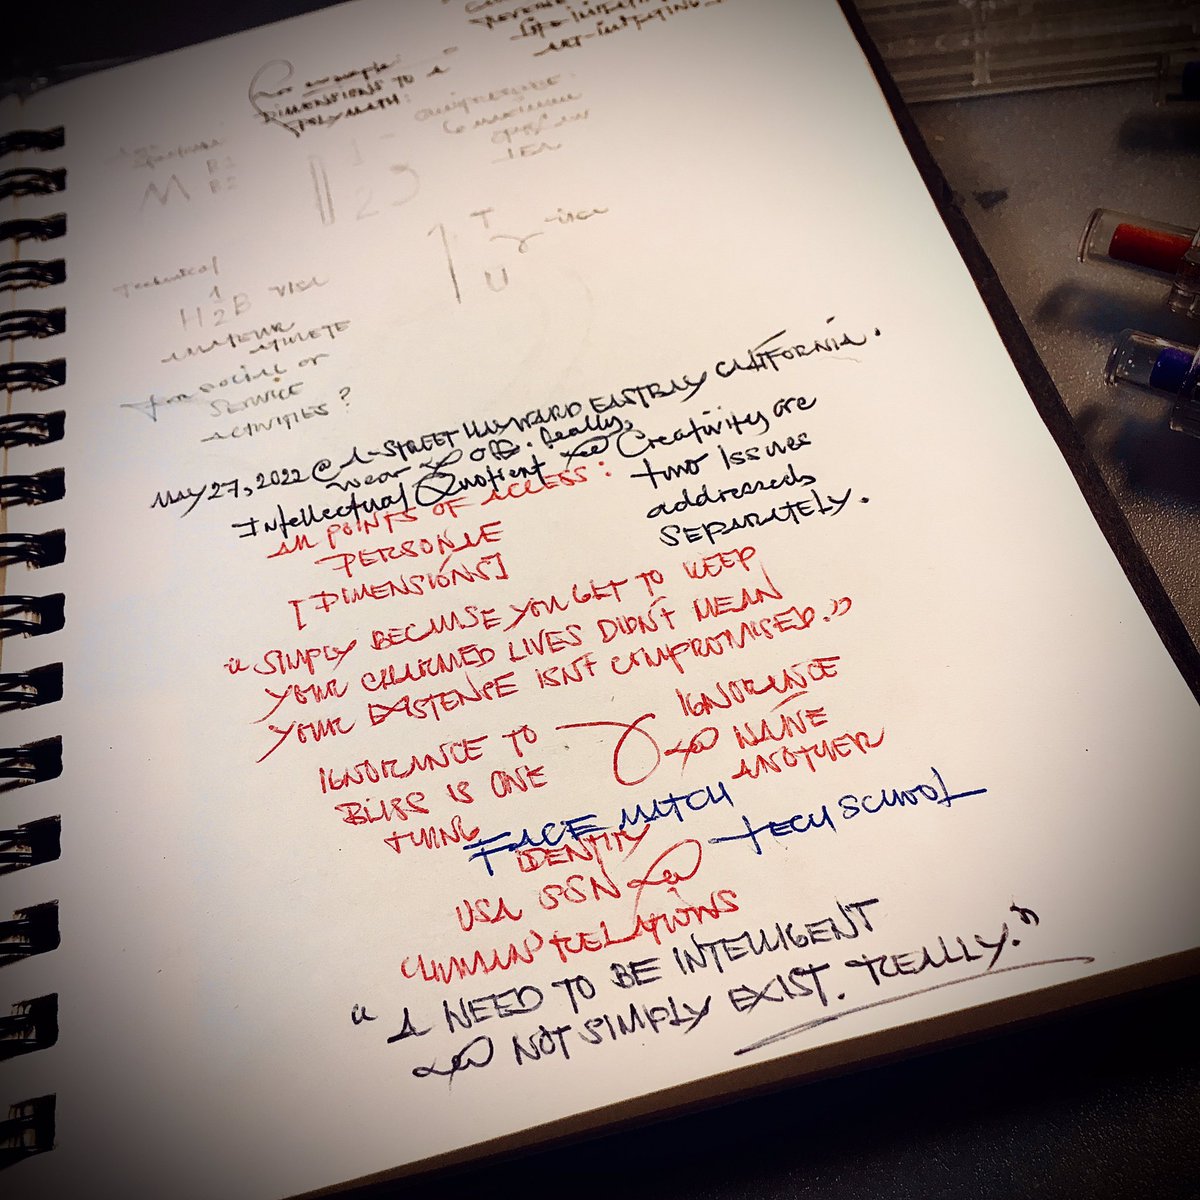 For example:
DIMENSIONS TO A
POLYMATH:
M B1
B2
1
2
T
U
Technical
H 1/2 B VISA
AMATEUR
ATHLETE
for social or
SERVICE
ACTIVITIES?
MAY 27, 2022 @ A-STREET HAYWARD EASTBAY CALIFORNIA.
wear off. Really,
Intellectual Quotient & Creativity are
two issues
addressed
SEPARATELY.
IN POINTS OF ACCESS:
PERSONAE
[DIMENSIONS]
"SIMPLY BECAUSE YOU GET TO KEEP
YOUR CHARMED LIVES DIDN'T MEAN
YOUR EXISTENCE ISN'T COMPROMISED."
IGNORANCE TO
BLISS IS ONE
THING
& IGNORANCE
NAÏVE
ANOTHER
FACE MATCH
TECH SCHOOL
IDENTITY
USA SSN &
HUMAN RELATIONS
"A NEED TO BE INTELLIGENT
& NOT SIMPLY EXIST. REALLY."